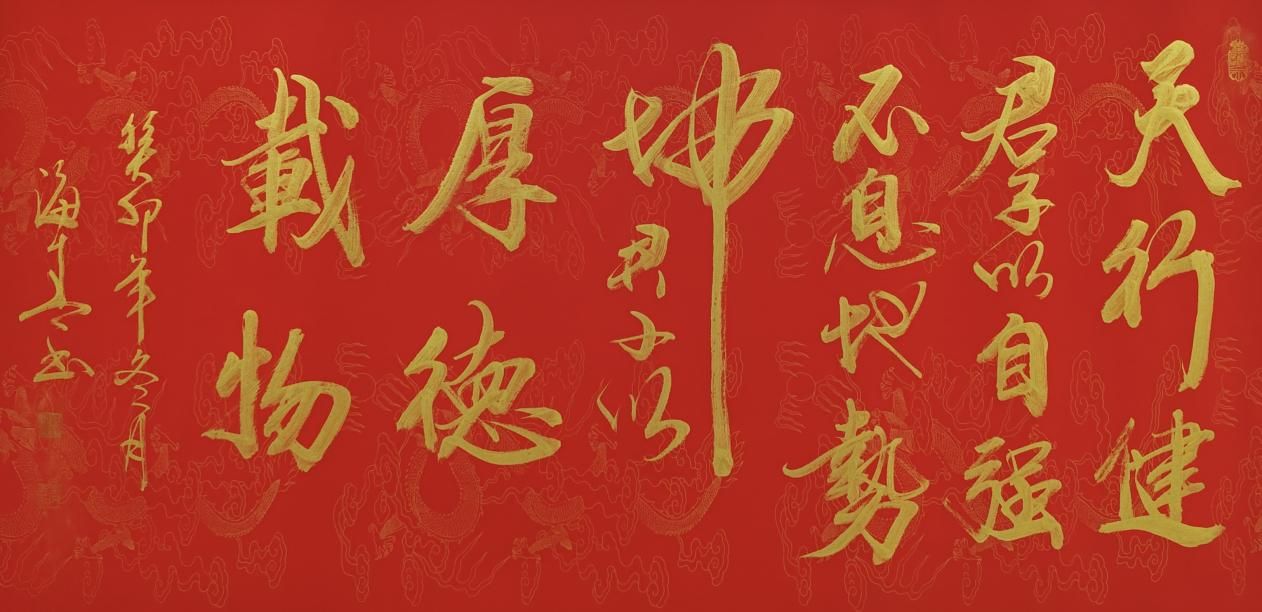 天行健
君子以自强
不息地势
坤君子以
厚德
載物
癸卯年冬月
海